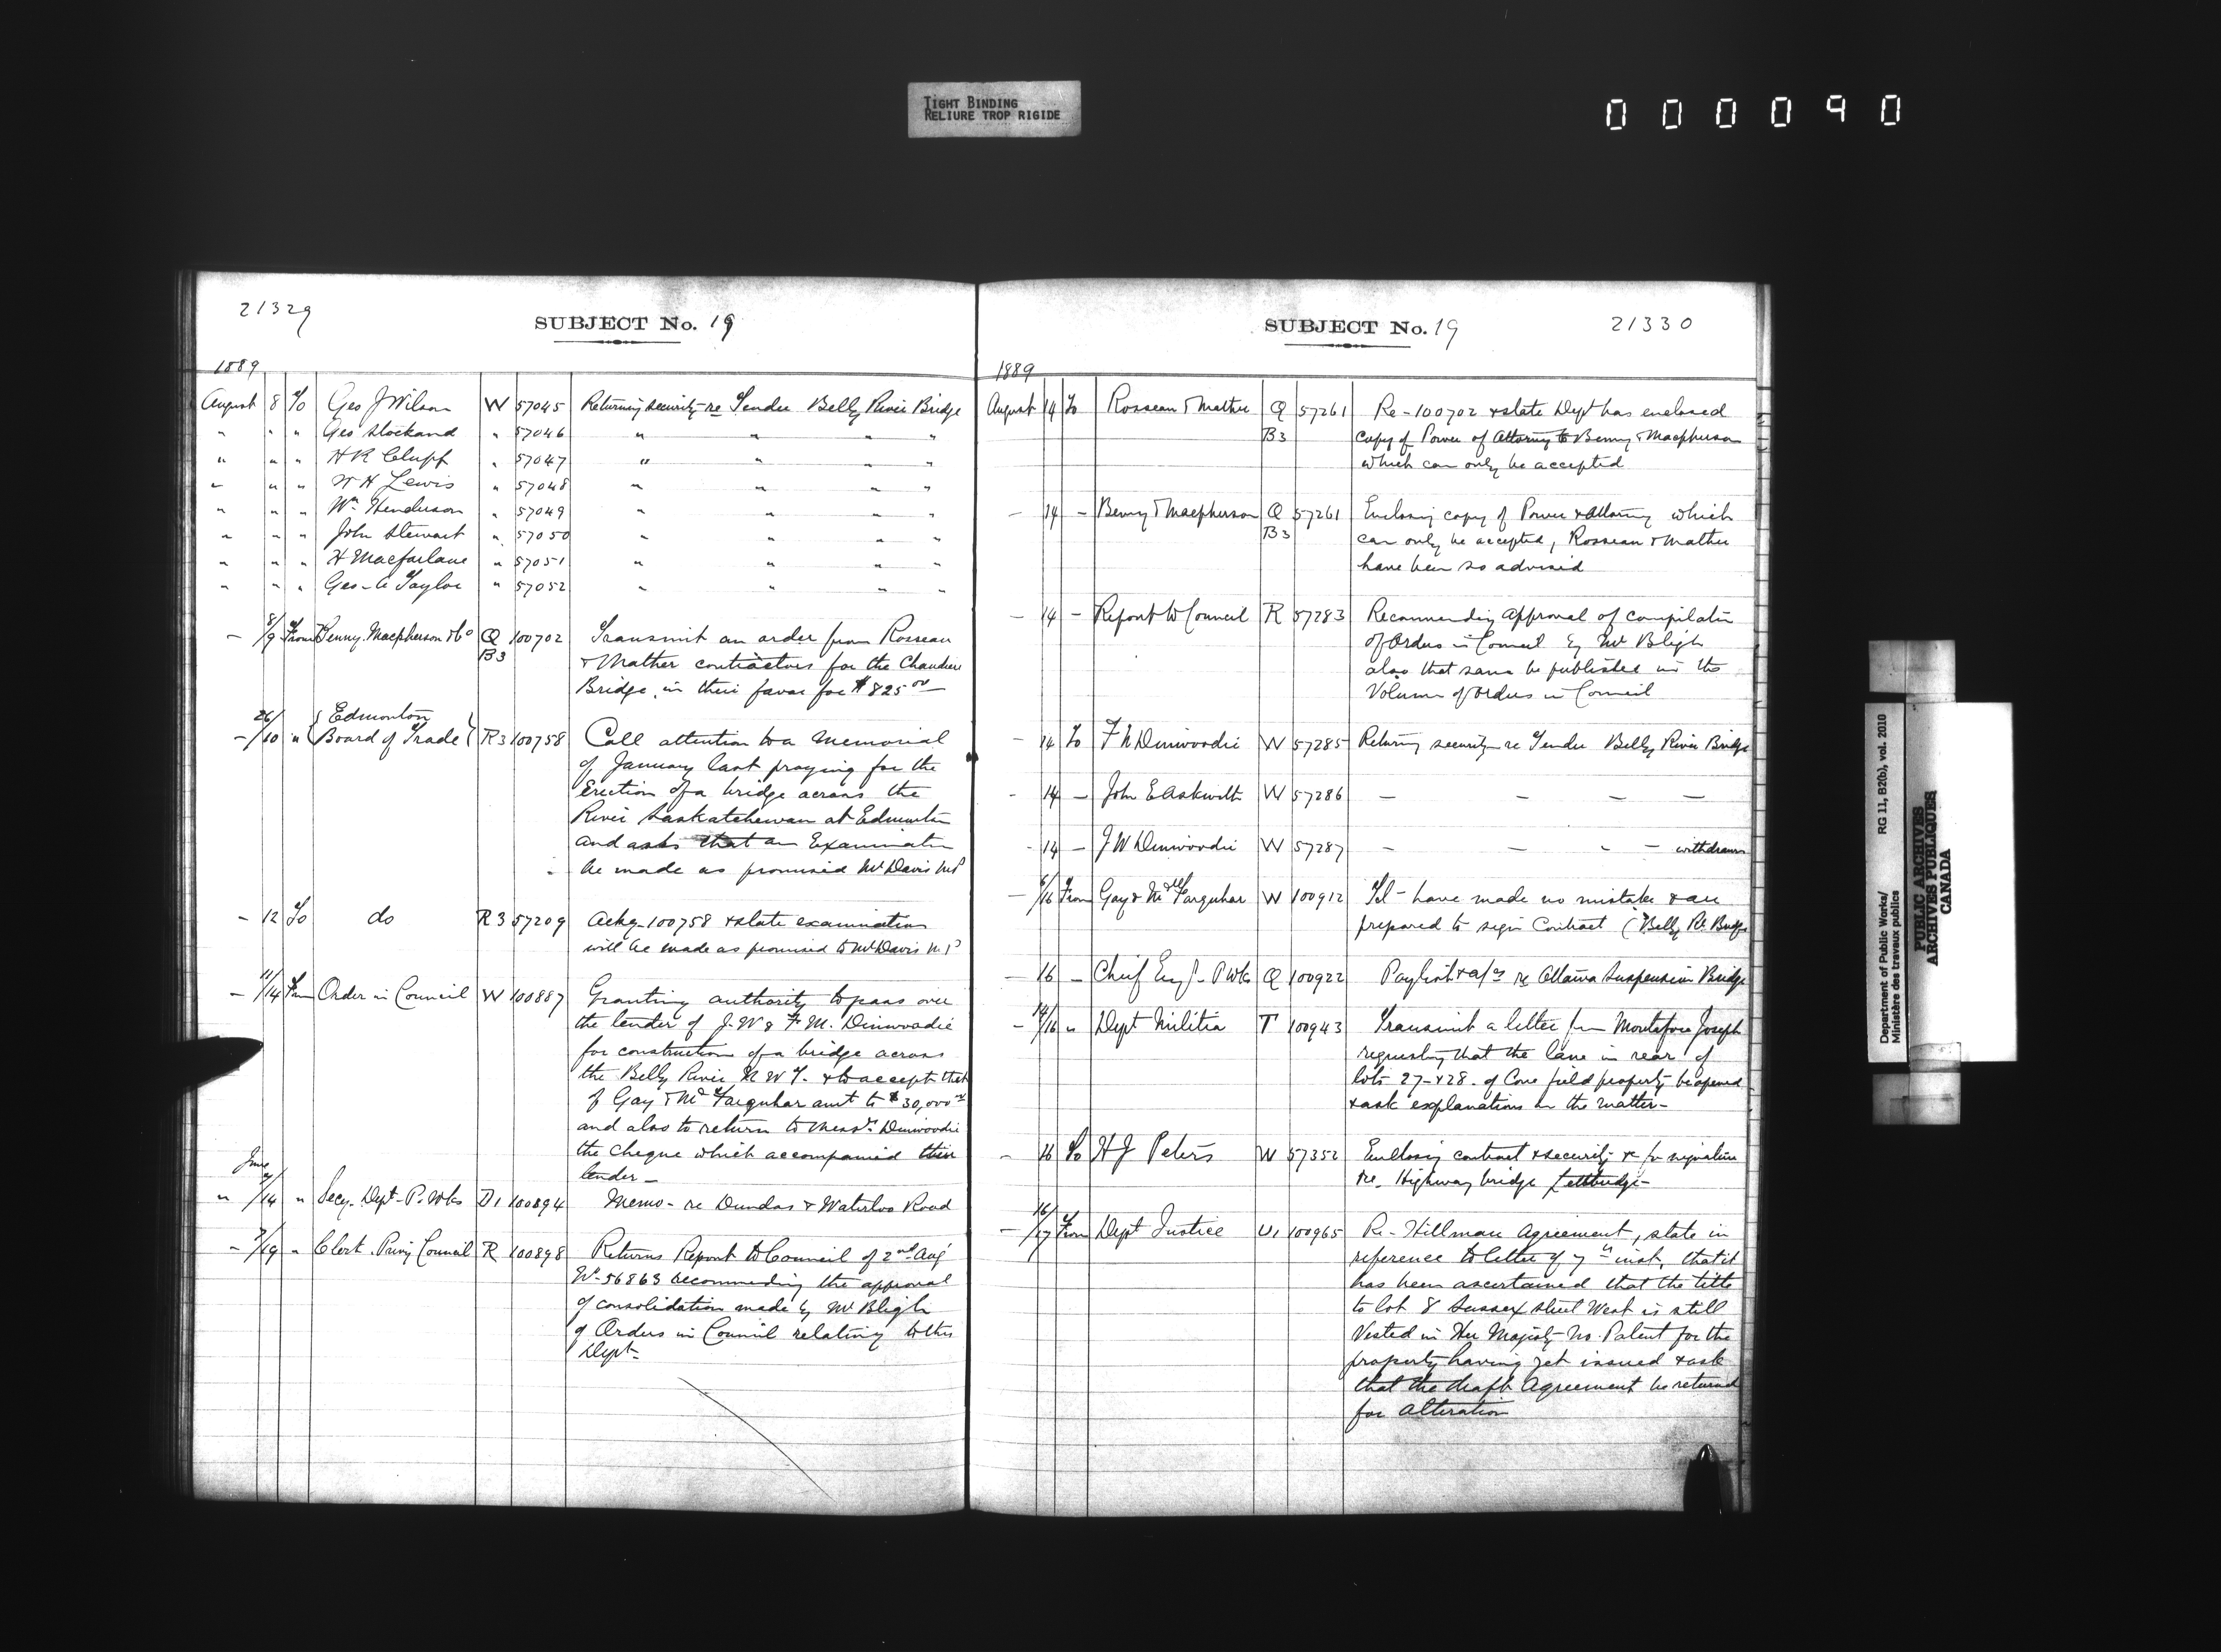 TIGHT BINDING
RELIURE TROP RIGIDE
000090
21329
SUBJECT No. 19
1889
August 8 To Geo J Wilson W 57045 Returning security re Tender Belly River Bridge
" " " Geo Stockand " 57046 " " " "
" " " H R Clupf " 57047 " " " "
" " " W H Lewis " 57048 " " " "
" " " Wm Henderson " 57049 " " " "
" " " John Stewart " 57050 " " " "
" " " H Macfarlane " 57051 " " " "
" " " Geo A Taylor " 57052 " " " "
- 8/9 From Benny Macpherson & Co Q 100702 Transmit an order from Rosseau
B3 & Mather contractors for the Chaudiere
Bridge, in their favor for $825 00
26/ Edmonton
- /10 " Board of Trade R3 100758 Call attention to a Memorial
of January last praying for the
Erection of a bridge across the
River Saskatchewan at Edmonton
and asks that an Examination
be made as promised Mr Davis MP
- 12 To do R3 57209 Ackg 100758 & state examination
will be made as promised to Mr Davis M.P
- 11/14 From Order in Council W 100887 Granting authority to pass over
the tender of J.W & F.M. Dinwoodie
for construction of a bridge across
the Belly River N W T. & to accept that
of Gay & McFarquhar amt to $30,000
and also to return to Messrs Dinwoodie
the cheque which accompanied their
June tender -
" /14 " Secy. Dept P. Wks D1 100894 Memo - re Dundas & Waterloo Road
- 7/19 " Clerk Privy Council R 100898 Returns Report to Council of 2nd Aug
W-56863 recommending the approval
of consolidation made by Mr Bligh
of Orders in Council relating to this
Dept-
SUBJECT No. 19
21330
1889
August 14 To Rosseau & Mather Q 57261 Re-100702 & state Dept has enclosed
B3 copy of Power of Attorney to Benny & Macpherson
which can only be accepted
- 14 - Benny & Macpherson Q 57261 Enclosing copy of Power & Attorney which
B3 can only be accepted, Rosseau & Mather
have been so advised
- 14 - Report to Council R 57283 Recommending approval of compilation
of Orders in Council by Mr Bligh
also that same be published in the
Volume of Orders in Council
- 14 To F N Dinwoodie W 57285 Returning security re Tender Belly River Bridge
- 14 - John E Askwith W 57286 - - - -
- 14 - J W Dinwoodie W 57287 - - - - withdrawn
- 6/16 From Gay & McFarquhar W 100912 Tel - have made no mistake & are
prepared to sign Contract (Belly R. Bridge
- 16 - Chief Eng - P Wks Q 100922 Paylist & a/cs re Ottawa Suspension Bridge
- 14/16 " Dept Militia T 100943 Transmit a letter from Montefiore Joseph
requesting that the lane in rear of
lots 27 & 28 - of Cove field property be opened
& ask explanations in the matter -
- 16 To H J Peters W 57352 Enclosing contract & security &c for signature
re. Highway bridge Lethbridge -
- 16/17 From Dept Justice U1 100965 Re - Hillman Agreement, state in
reference to letter of 7th inst. that it
has been ascertained that the title
to lot 8 Sussex street West is still
Vested in Her Majesty no Patent for the
property having yet issued & ask
that the draft Agreement be returned
for alteration
Department of Public Works/
Ministère des travaux publics
RG 11, B2(b), vol. 2010
PUBLIC ARCHIVES
ARCHIVES PUBLIQUES
CANADA